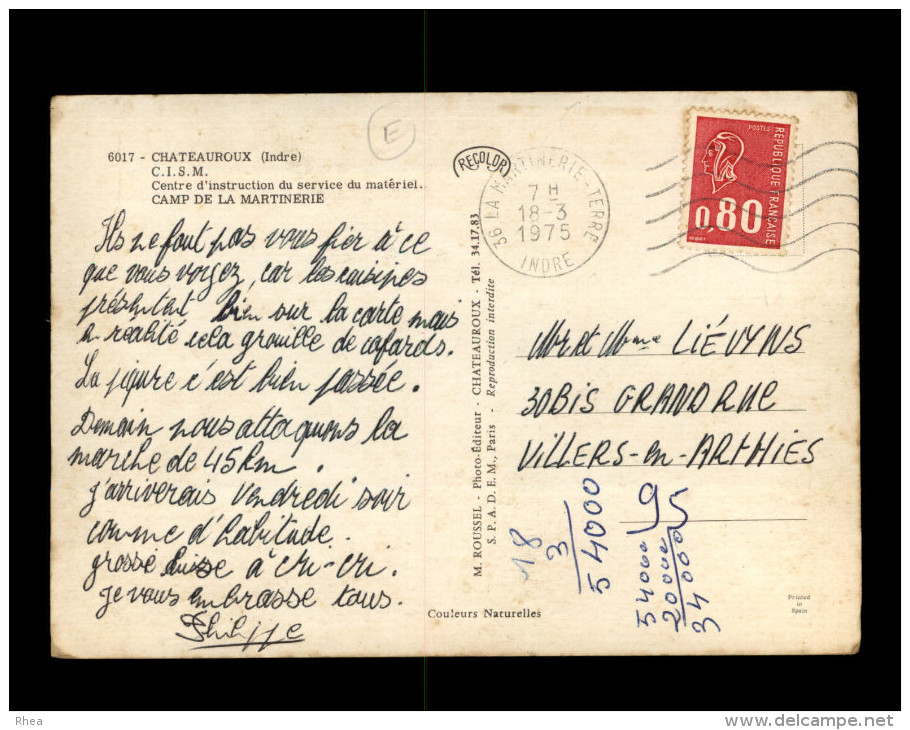 6017 - CHATEAUROUX (Indre)
C.I.S.M.
Centre d'instruction du service du matériel.
CAMP DE LA MARTINERIE
E
RECOLOR
36 LA MARTINERIE-TERRE
7 H
18-3
1975
INDRE
POSTES
RÉPUBLIQUE FRANÇAISE
0,80
Ils ne faut pas vous fier à ce
que vous voyez, car les cuisines
présentent bien sur la carte mais
n realité cela grouille de cafards.
La piqure c'est bien passée.
Demain nous attaquons la
marche de 45 km.
j'arriverais Vendredi soir
comme d'habitude.
grosse buise à Cri-Cri.
je vous embrasse tous.
Philippe
M. ROUSSEL - Photo-Éditeur - CHATEAUROUX - Tél. 34.17.83
S.P.A.D.E.M., Paris - Reproduction interdite
Mr et Mme LIÉVYNS
30BIS GRAND RUE
VILLERS-en-ARTHIES
18
3
54000
54000
20000
34000
Couleurs Naturelles
Printed
in
Spain
Rhea
www.delcampe.net